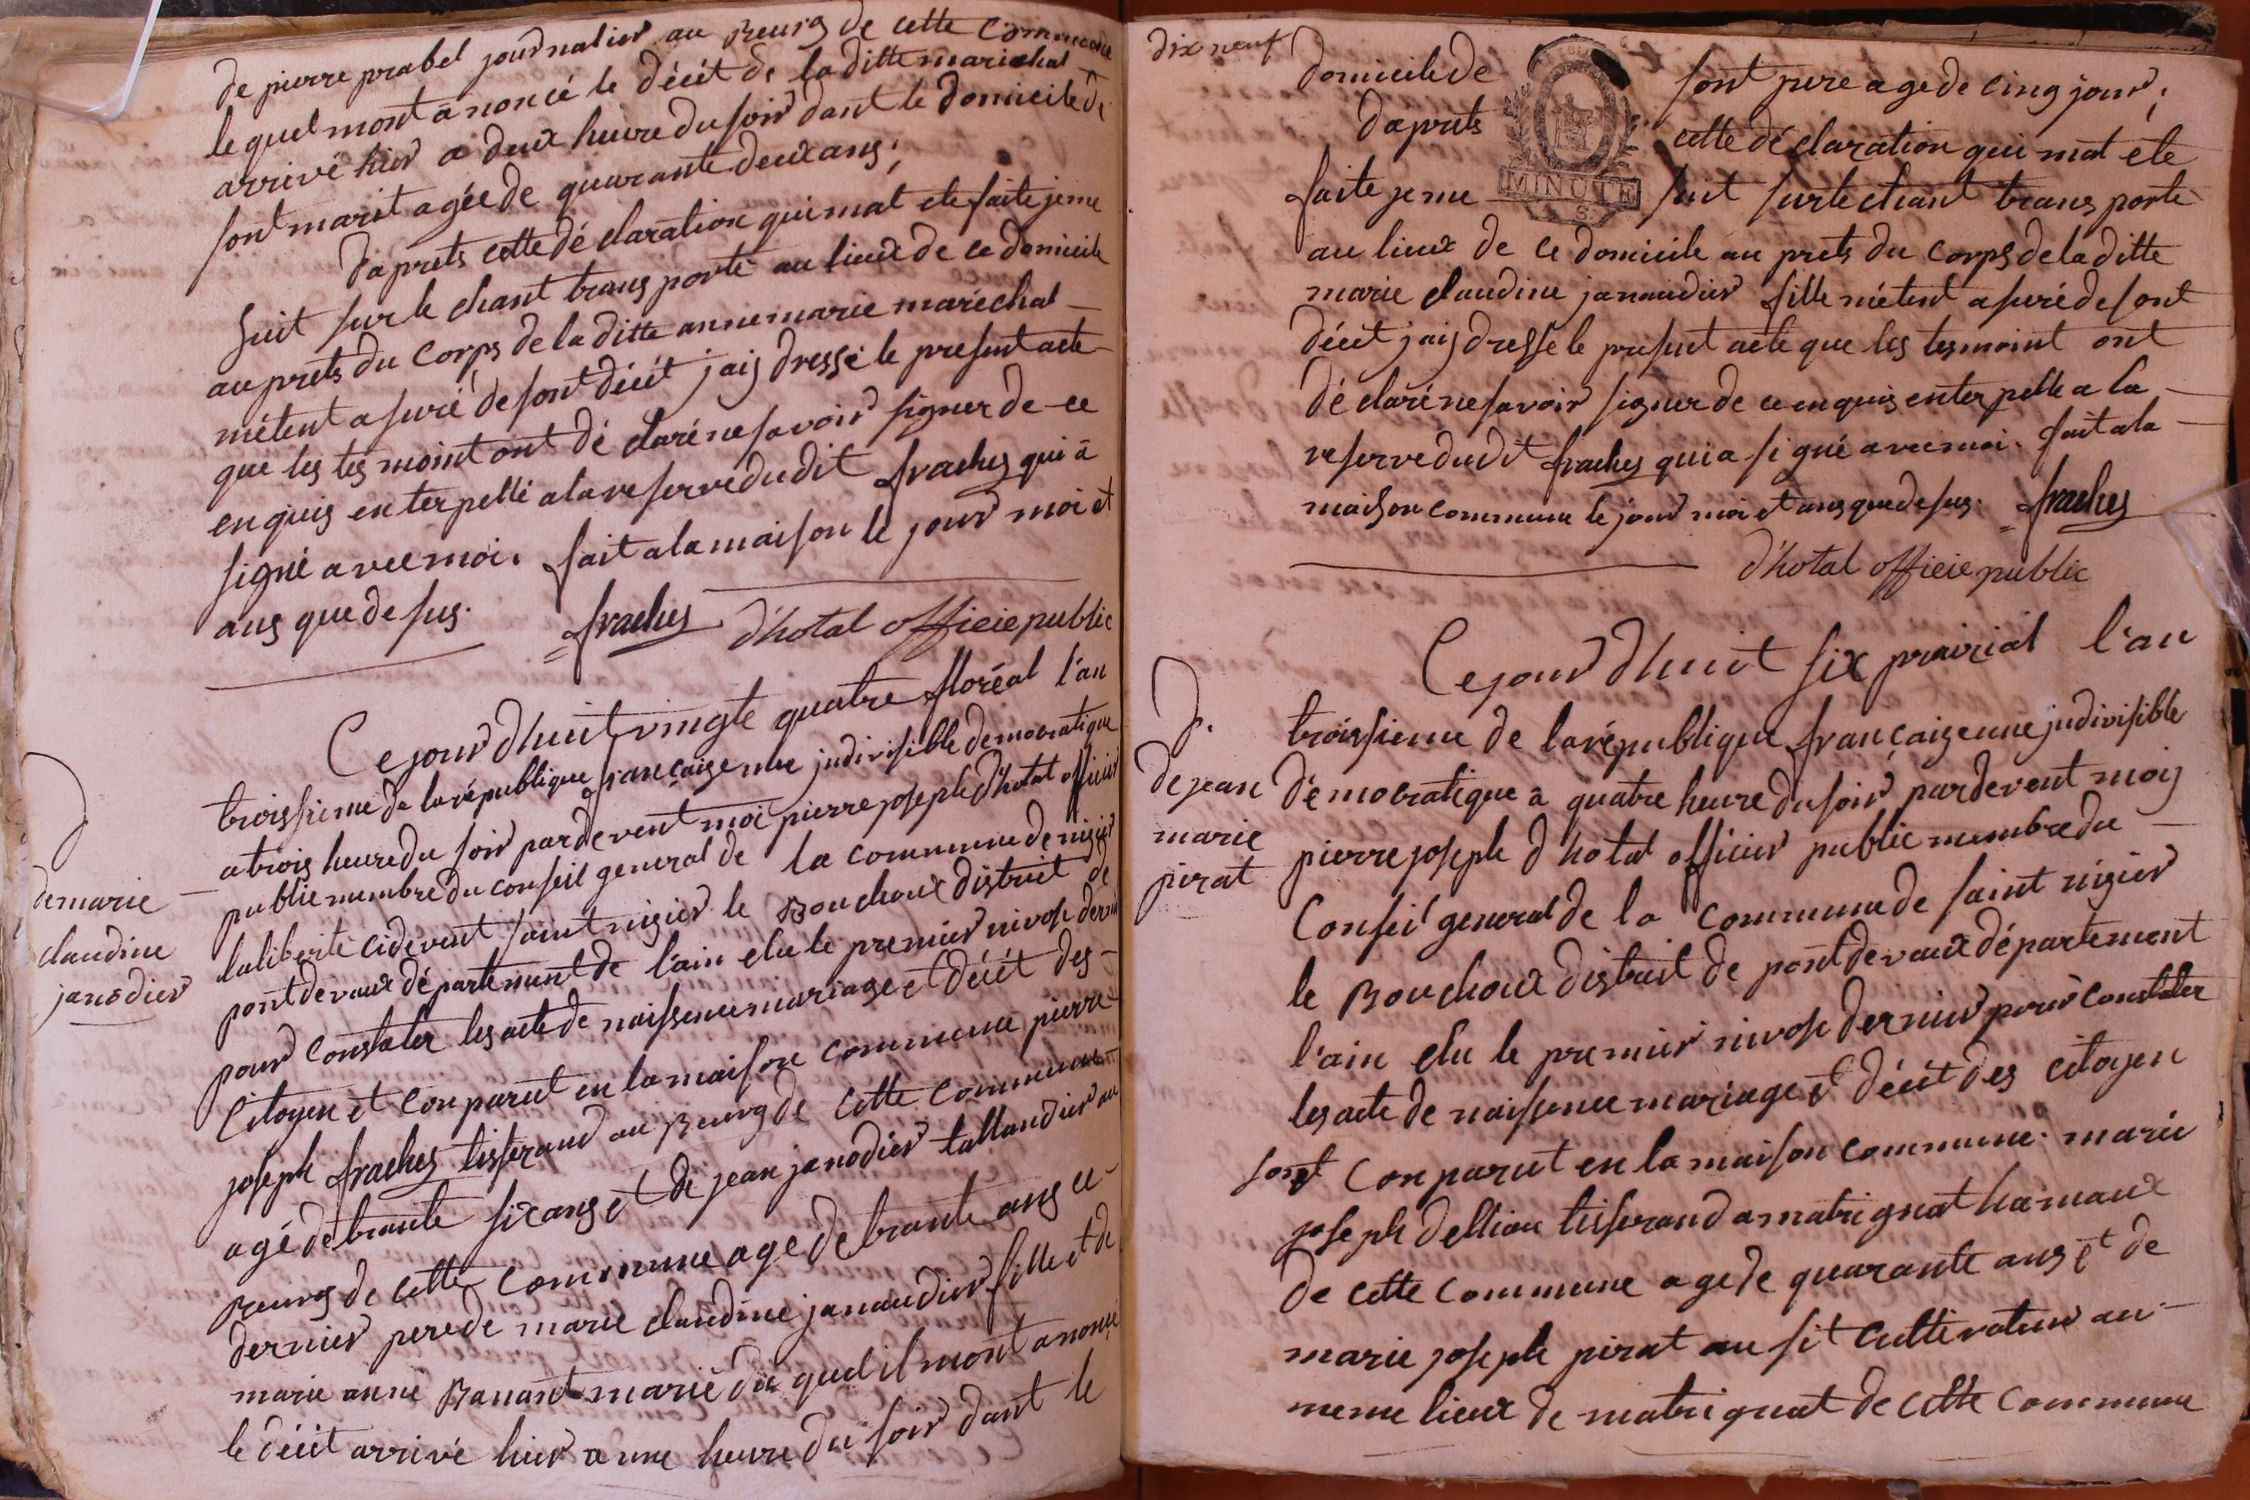 de pierre prabel journalier au Bourg de cette Commune
le quel mont a noncé le décét de la ditte marechal
arrivé hier a deux heure du soir dant le domicile de
sont marit agée de quarante deux ans;
d'aprets cette dé claration qui mat ete faite je me
suit sur le chant trans porté au lieux de ce domicile
au prets du corps de la ditte anne marie maréchal
métent a suré de sont décét jais dressé le presentacte
que les tes moint ont dé claré ne savoir signer de ce
enquis enterpellé a la reserve du dit fraches qui à
signé avec moi. fait a la maison le jour moi et
ans que de sus.
fraches d'hotal officie public
Ce jour d'huit vingte quatre floréal l'an
troissieme de la république française une indivisible democratique
a trois heure du soir par devent moi pierre joseph d'hotal officier
public membre du conseil general de la commune de nizier
la liberté cidevent saint nizier le Bouchoux distrait de
pontdevaux département de l'ain elu le premier nivose dernier
pour constater les acte de naissence mariage et décét des
Citoyen et conparut en la maison commune pierre
joseph fraches tisserand au Bourg de cette commune
agé de trante six ans et de jean janodier tallandier au
Bourg de cette commune age de trante ans ce
dernier pere de marie claudine janaudier fille et de
marie anne Banant marié du quel il mont anoncé
le décét arrivé hier a une heure du soir dant le
D
de marie
claudine
janodier
dix neuf
domicile de sont pere age de cinq jour;
d'aprets cette dé claration qui mat ete
faite je me suit sur le chant trans porté
MINUTE
au lieux de ce domicile au prets du corps de la ditte
marie claudine janaudier fille métent a suré de sont
décét jais dressé le present acte que les tesmoint ont
dé claré ne savoir signer de ce enquis enterpellé a la
reserve du dit fraches qui a signé avec moi. fait a la
maison commune le jour moi et ans que de sus. fraches
d'hotal officie public
Ce jour d'huit six prairial l'an
troissieme de la république française une indivisible
démocratique a quatre heure du soir par devent mois
pierre joseph d'hotal officier public membre du
Conseil general de la commune de saint nizier
le Bouchoux distrait de pontdevaux département
l'ain elu le premier nivose dernier pour constater
les acte de naissence mariage et décét des citoyen
sont conparut en la maison commune. marie
joseph dellian tisserand a matrignat hamaux
de cette commune age de quarante ans et de
marie joseph pirat au sit cultivateur au
meme lieux de matrignat de cette commune
D.
de jean
marie
pirat